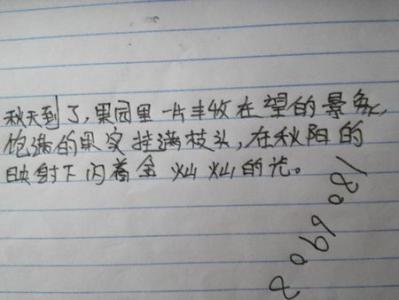 秋天到了,果园里一片丰收在望的景象,
饱满的果实挂满枝头,在秋阳的
映射下闪着金灿灿的光。